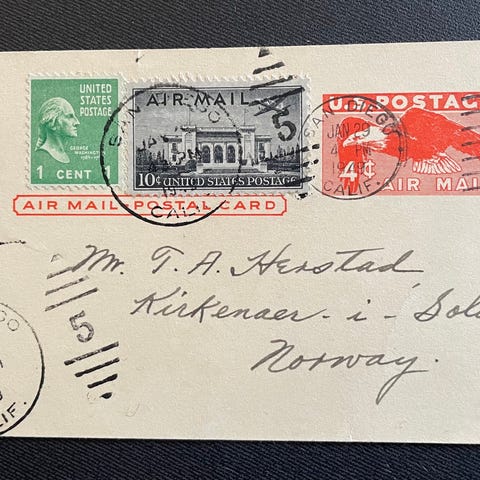 UNITED STATES POSTAGE
GEORGE WASHINGTON
1 CENT
AIR MAIL
10¢ UNITED STATES POSTAGE
SAN DIEGO
CALIF.
5
U.S. POSTAG
4¢
AIR MAI
SAN DIEGO
JAN 29
4 PM
CALIF.
AIR MAIL-POSTAL CARD
Mr. T. A. Herstad,
Kirkenaer - i - Sol
Norway.
5
GO
LIF.